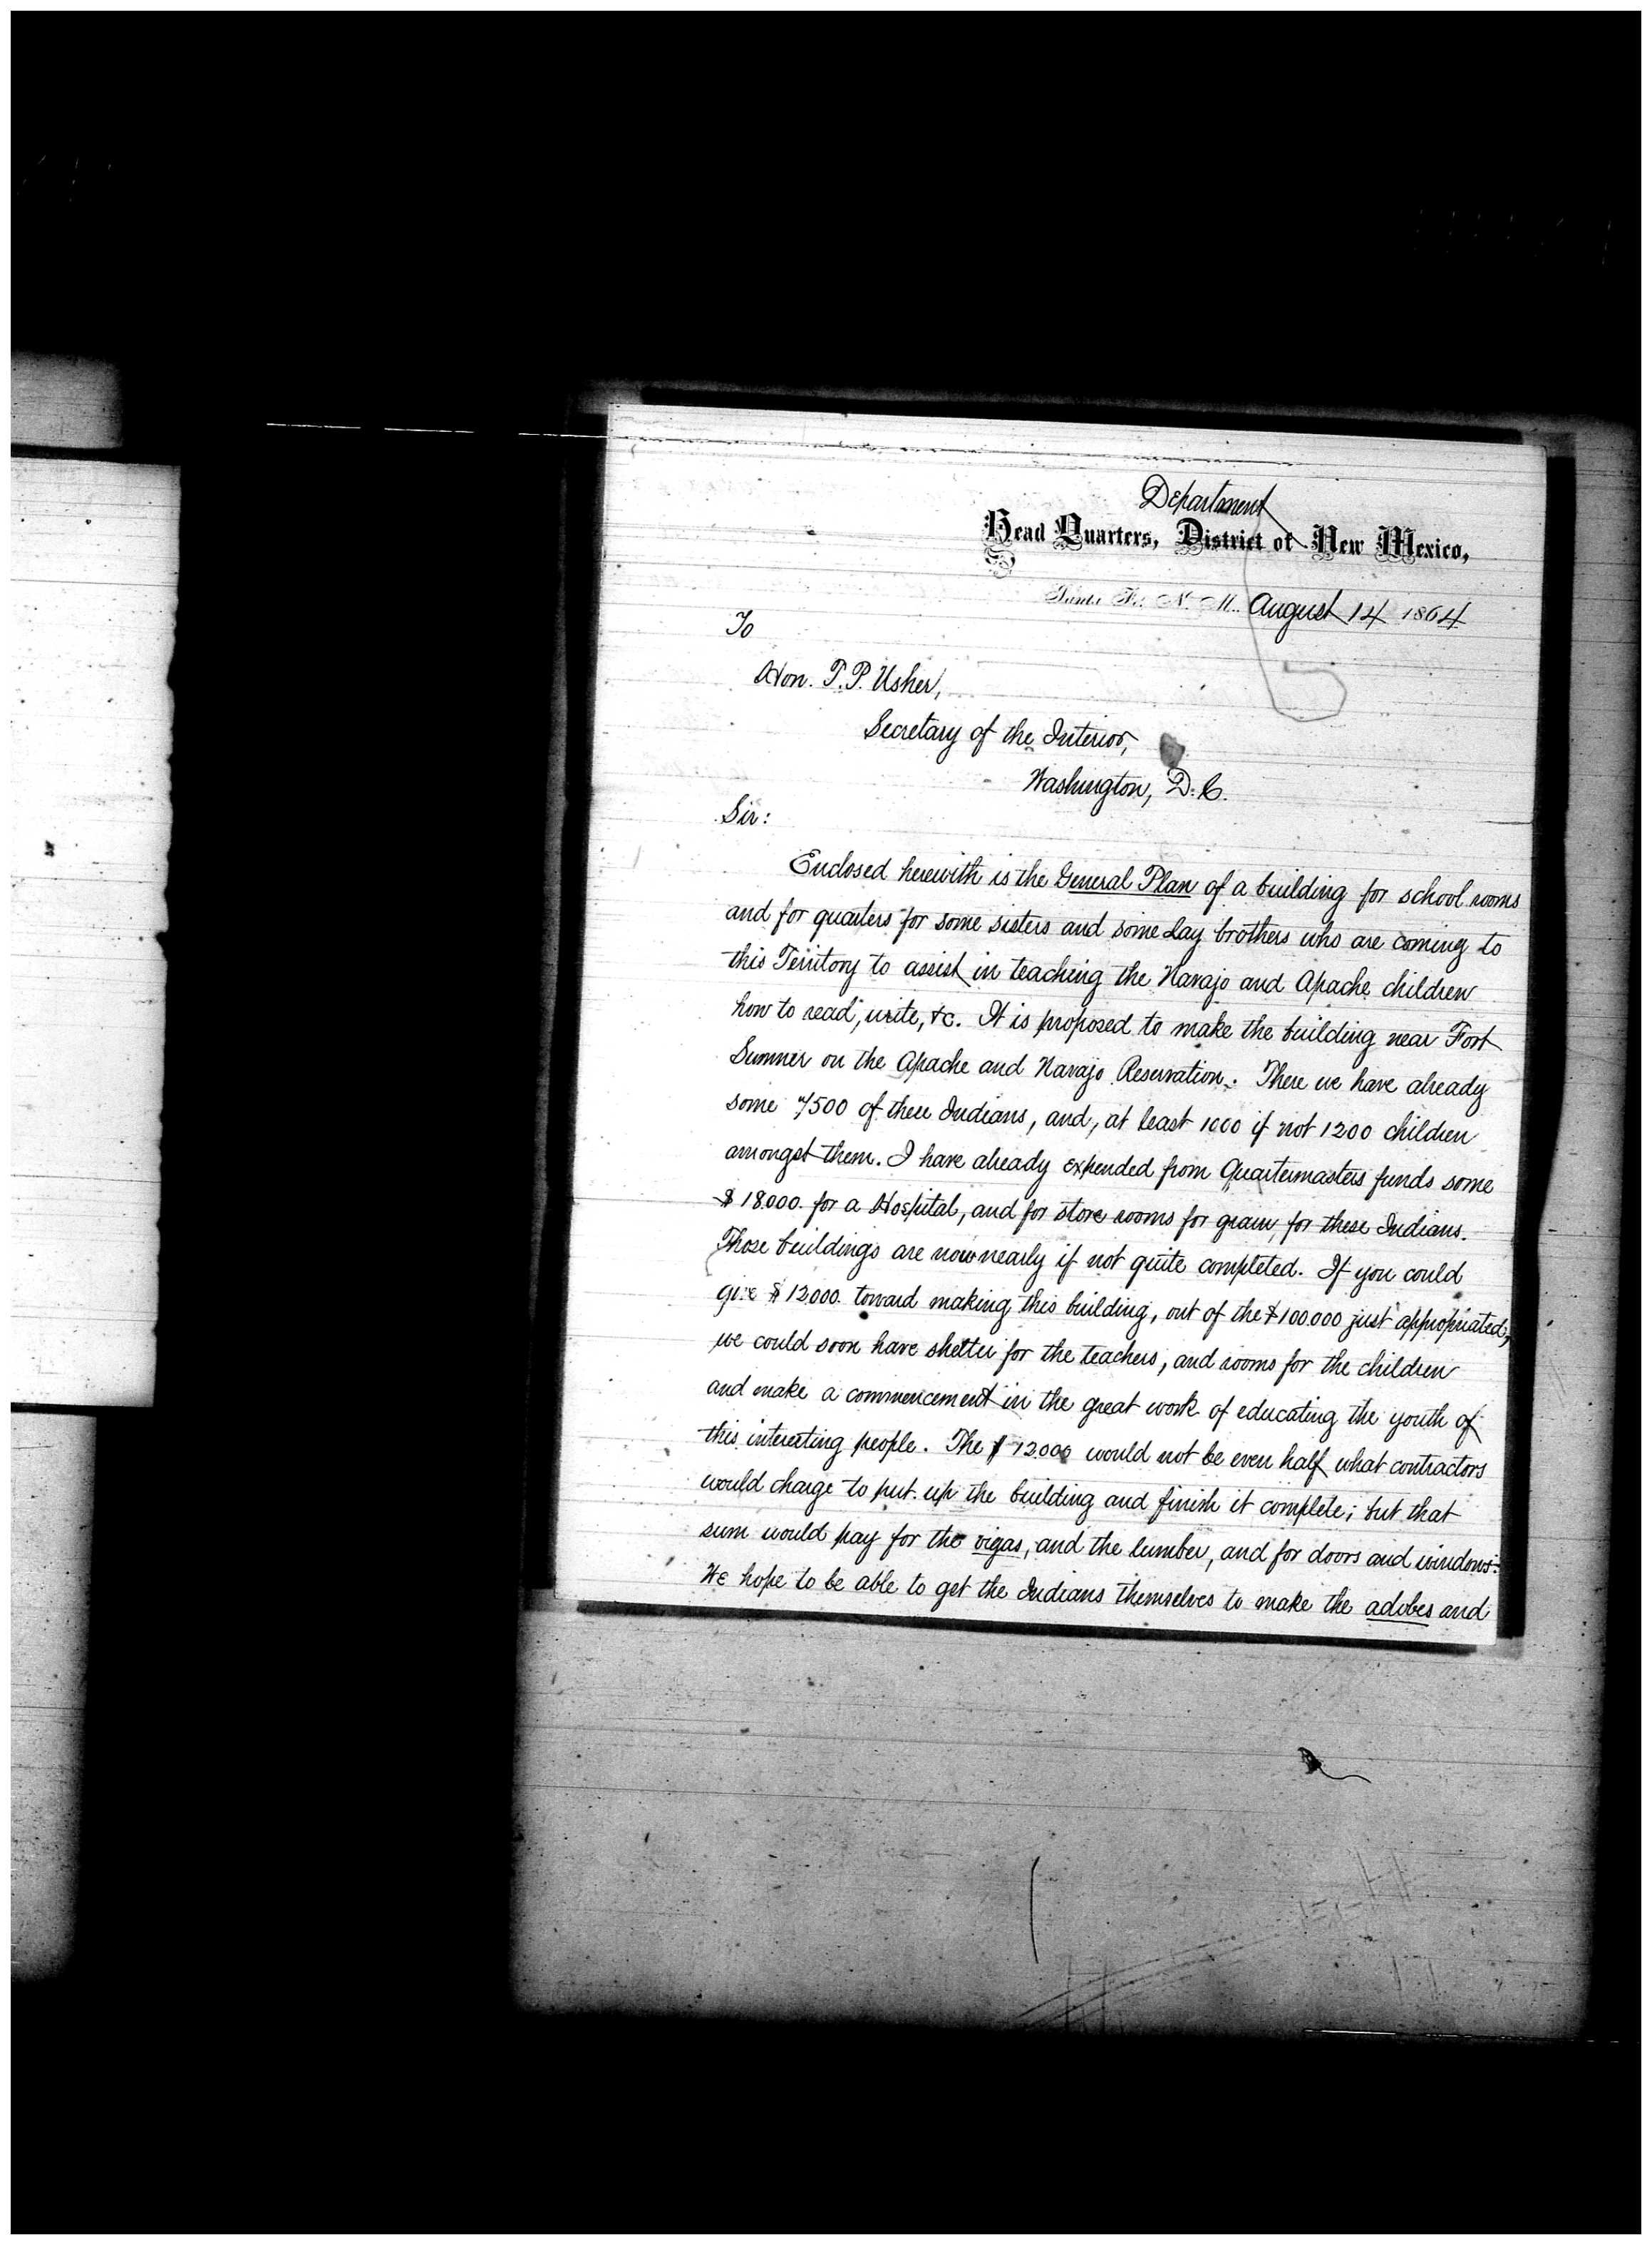 Department
Head Quarters, District of New Mexico,
Santa Fe, N. M. August 14 1864
To
Hon. P. P. Usher,
Secretary of the Interior,
Washington, D. C.
Sir:
Enclosed herewith is the General Plan of a building for school rooms
and for quarters for some sisters and some lay brothers who are coming to
this Territory to assist in teaching the Navajo and Apache children
how to read, write, &c. It is proposed to make the building near Fort
Sumner on the Apache and Navajo Reservation. There we have already
some 7500 of these Indians, and, at least 1000 if not 1200 children
amongst them. I have already expended from Quartermasters funds some
$18.000. for a Hospital, and for store rooms for grain, for these Indians.
Those buildings are now nearly if not quite completed. If you could
give $12000. toward making this building, out of the $100.000 just appropriated,
we could soon have shelter for the teachers, and rooms for the children
and make a commencement in the great work of educating the youth of
this interesting people. The $12.000 would not be even half what contractors
would charge to put up the building and finish it complete; but that
sum would pay for the vigas, and the lumber, and for doors and windows.
We hope to be able to get the Indians themselves to make the adobes and